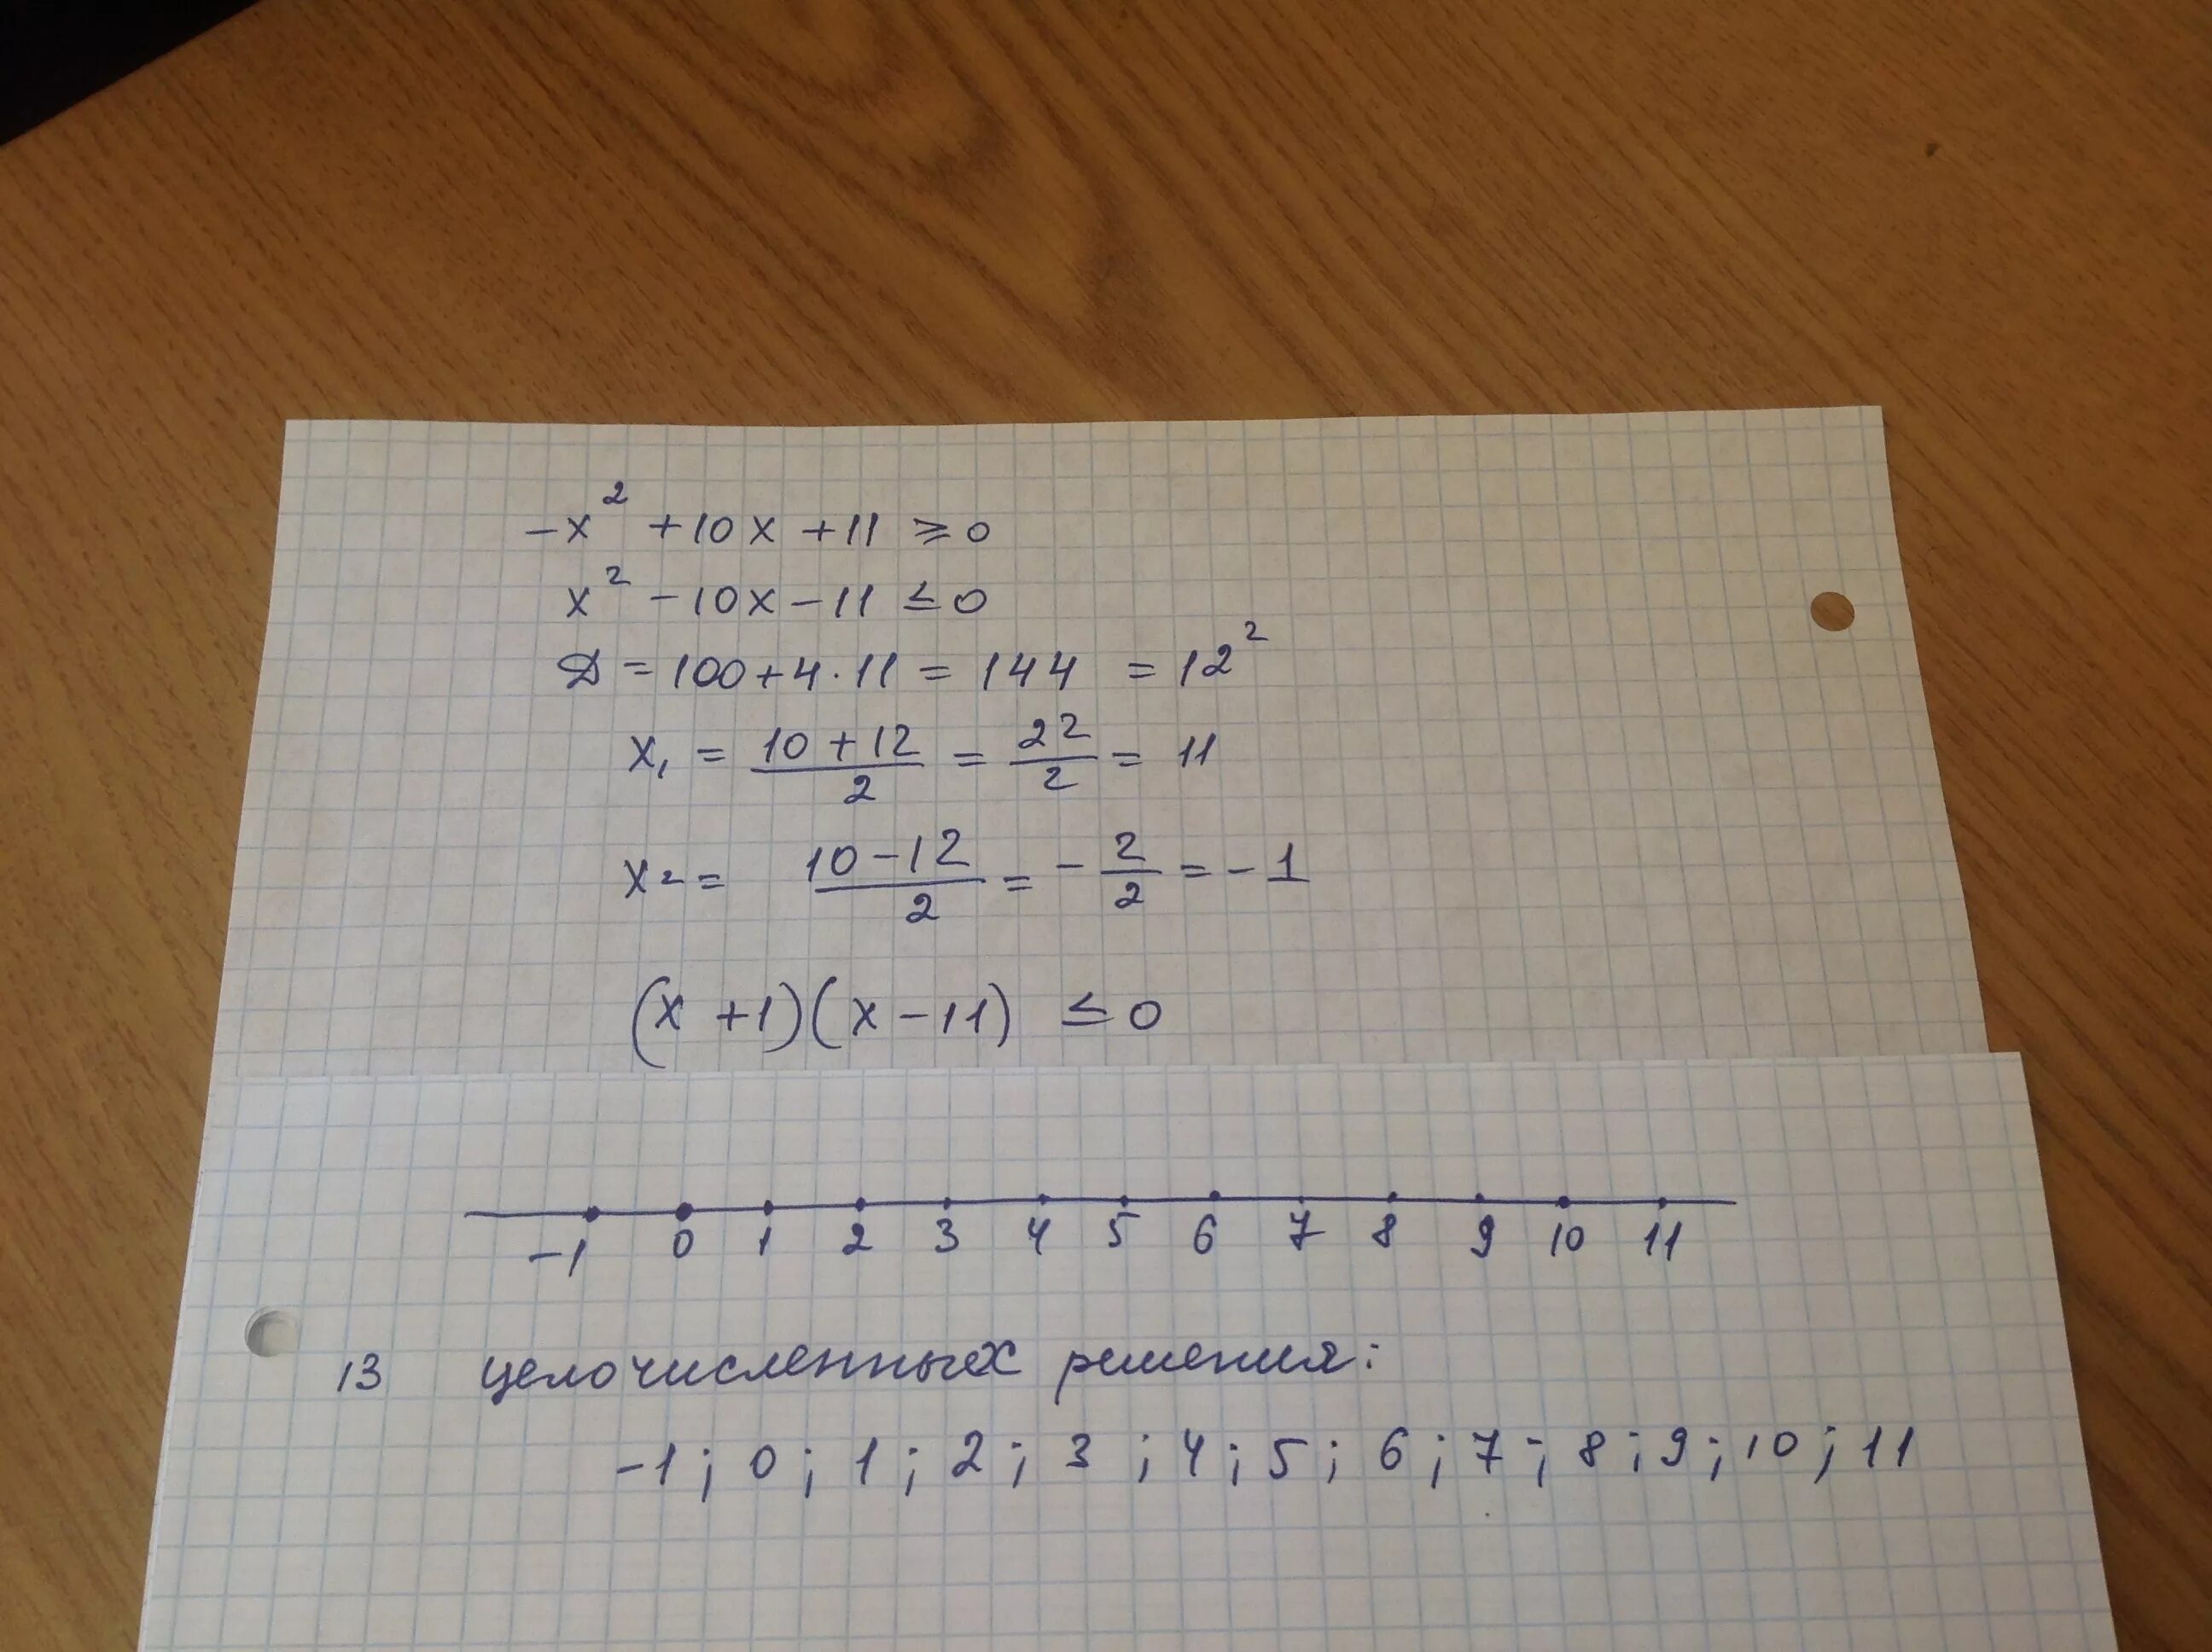 -x² + 10x + 11 ≥ 0
x² - 10x - 11 ≤ 0
D = 100 + 4 · 11 = 144 = 12²
x₁ = (10 + 12)/2 = 22/2 = 11
x₂ = (10 - 12)/2 = -2/2 = -1
(x + 1)(x - 11) ≤ 0
-1 0 1 2 3 4 5 6 7 8 9 10 11
13 целочисленных решения:
-1; 0; 1; 2; 3; 4; 5; 6; 7; 8; 9; 10; 11